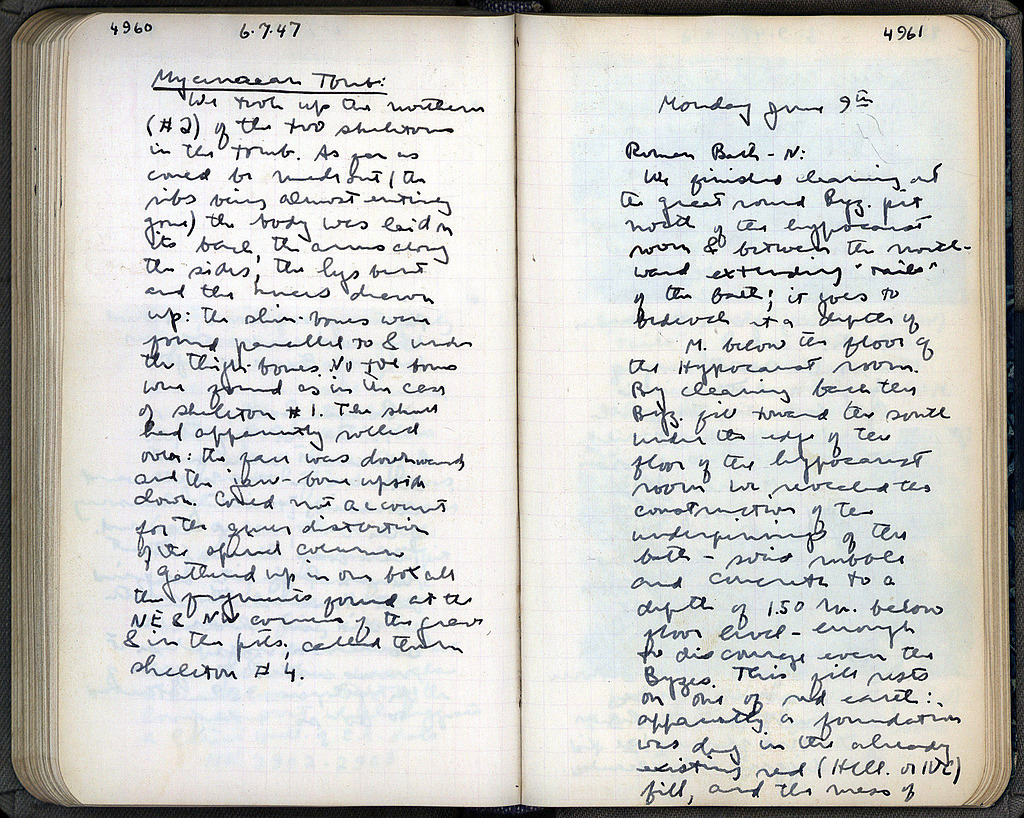 4960 6.7.47
Mycenaean Tomb:
We took up the northern
(#2) of the two skeletons
in the tomb. As far as
could be made out (the
ribs being almost entirely
gone) the body was laid on
its back, the arms along
the sides, the legs bent
and the knees drawn
up: the shin-bones were
found parallel to & under
the thigh-bones. No toe bones
were found as in the case
of skeleton #1. The skull
had apparently rolled
over: the face was downward
and the jaw-bone upside
down. Could not account
for the queer distortion
of the spinal column.
Gathered up in one box all
the fragments found at the
NE & NW corners of the grave
& in the pits; called them
skeleton #4.
4961
Monday June 9th
Roman Bath - N:
We finished cleaning out
the great round Byz. pit
north of the hypocaust
room & between the north-
ward extending "rails"
of the bath; it goes to
bedrock at a depth of
M. below the floor of
the Hypocaust room.
By cleaning back the
Byz. fill toward the south
under the edge of the
floor of the hypocaust
room we revealed the
construction of the
underpinnings of the
bath - solid rubble
and concrete to a
depth of 1.50 m. below
floor level - enough
to discourage even the
Byzes. This fill rests
on one of red earth:
apparently a foundation
was dug in the already
existing red (Hell. or IVc)
fill, and the mess of